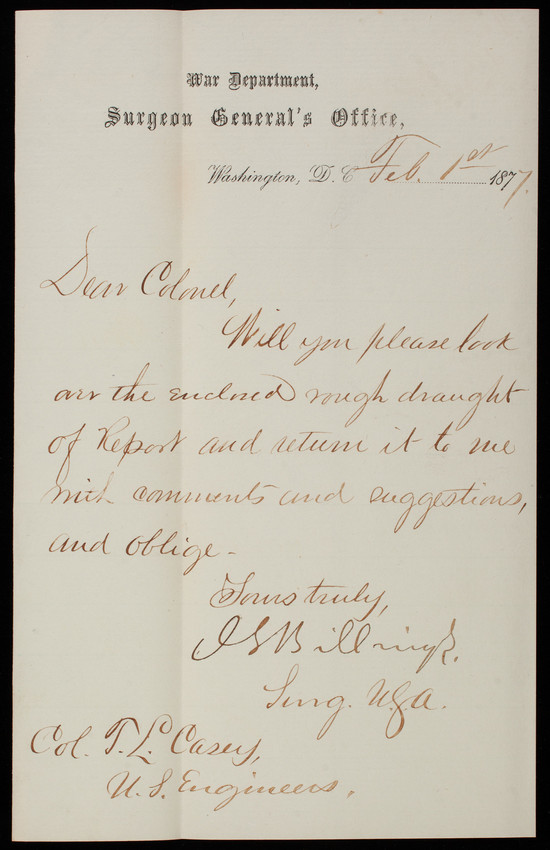 War Department,
Surgeon General's Office,
Washington, D. C. Feb. 1st 1877.
Dear Colonel,
Will you please look
over the enclosed rough draught
of Report and return it to me
with comments and suggestions,
and oblige -
Yours truly,
J S Billings.
Surg. U.S.A.
Col. T. L. Casey,
U. S. Engineers.